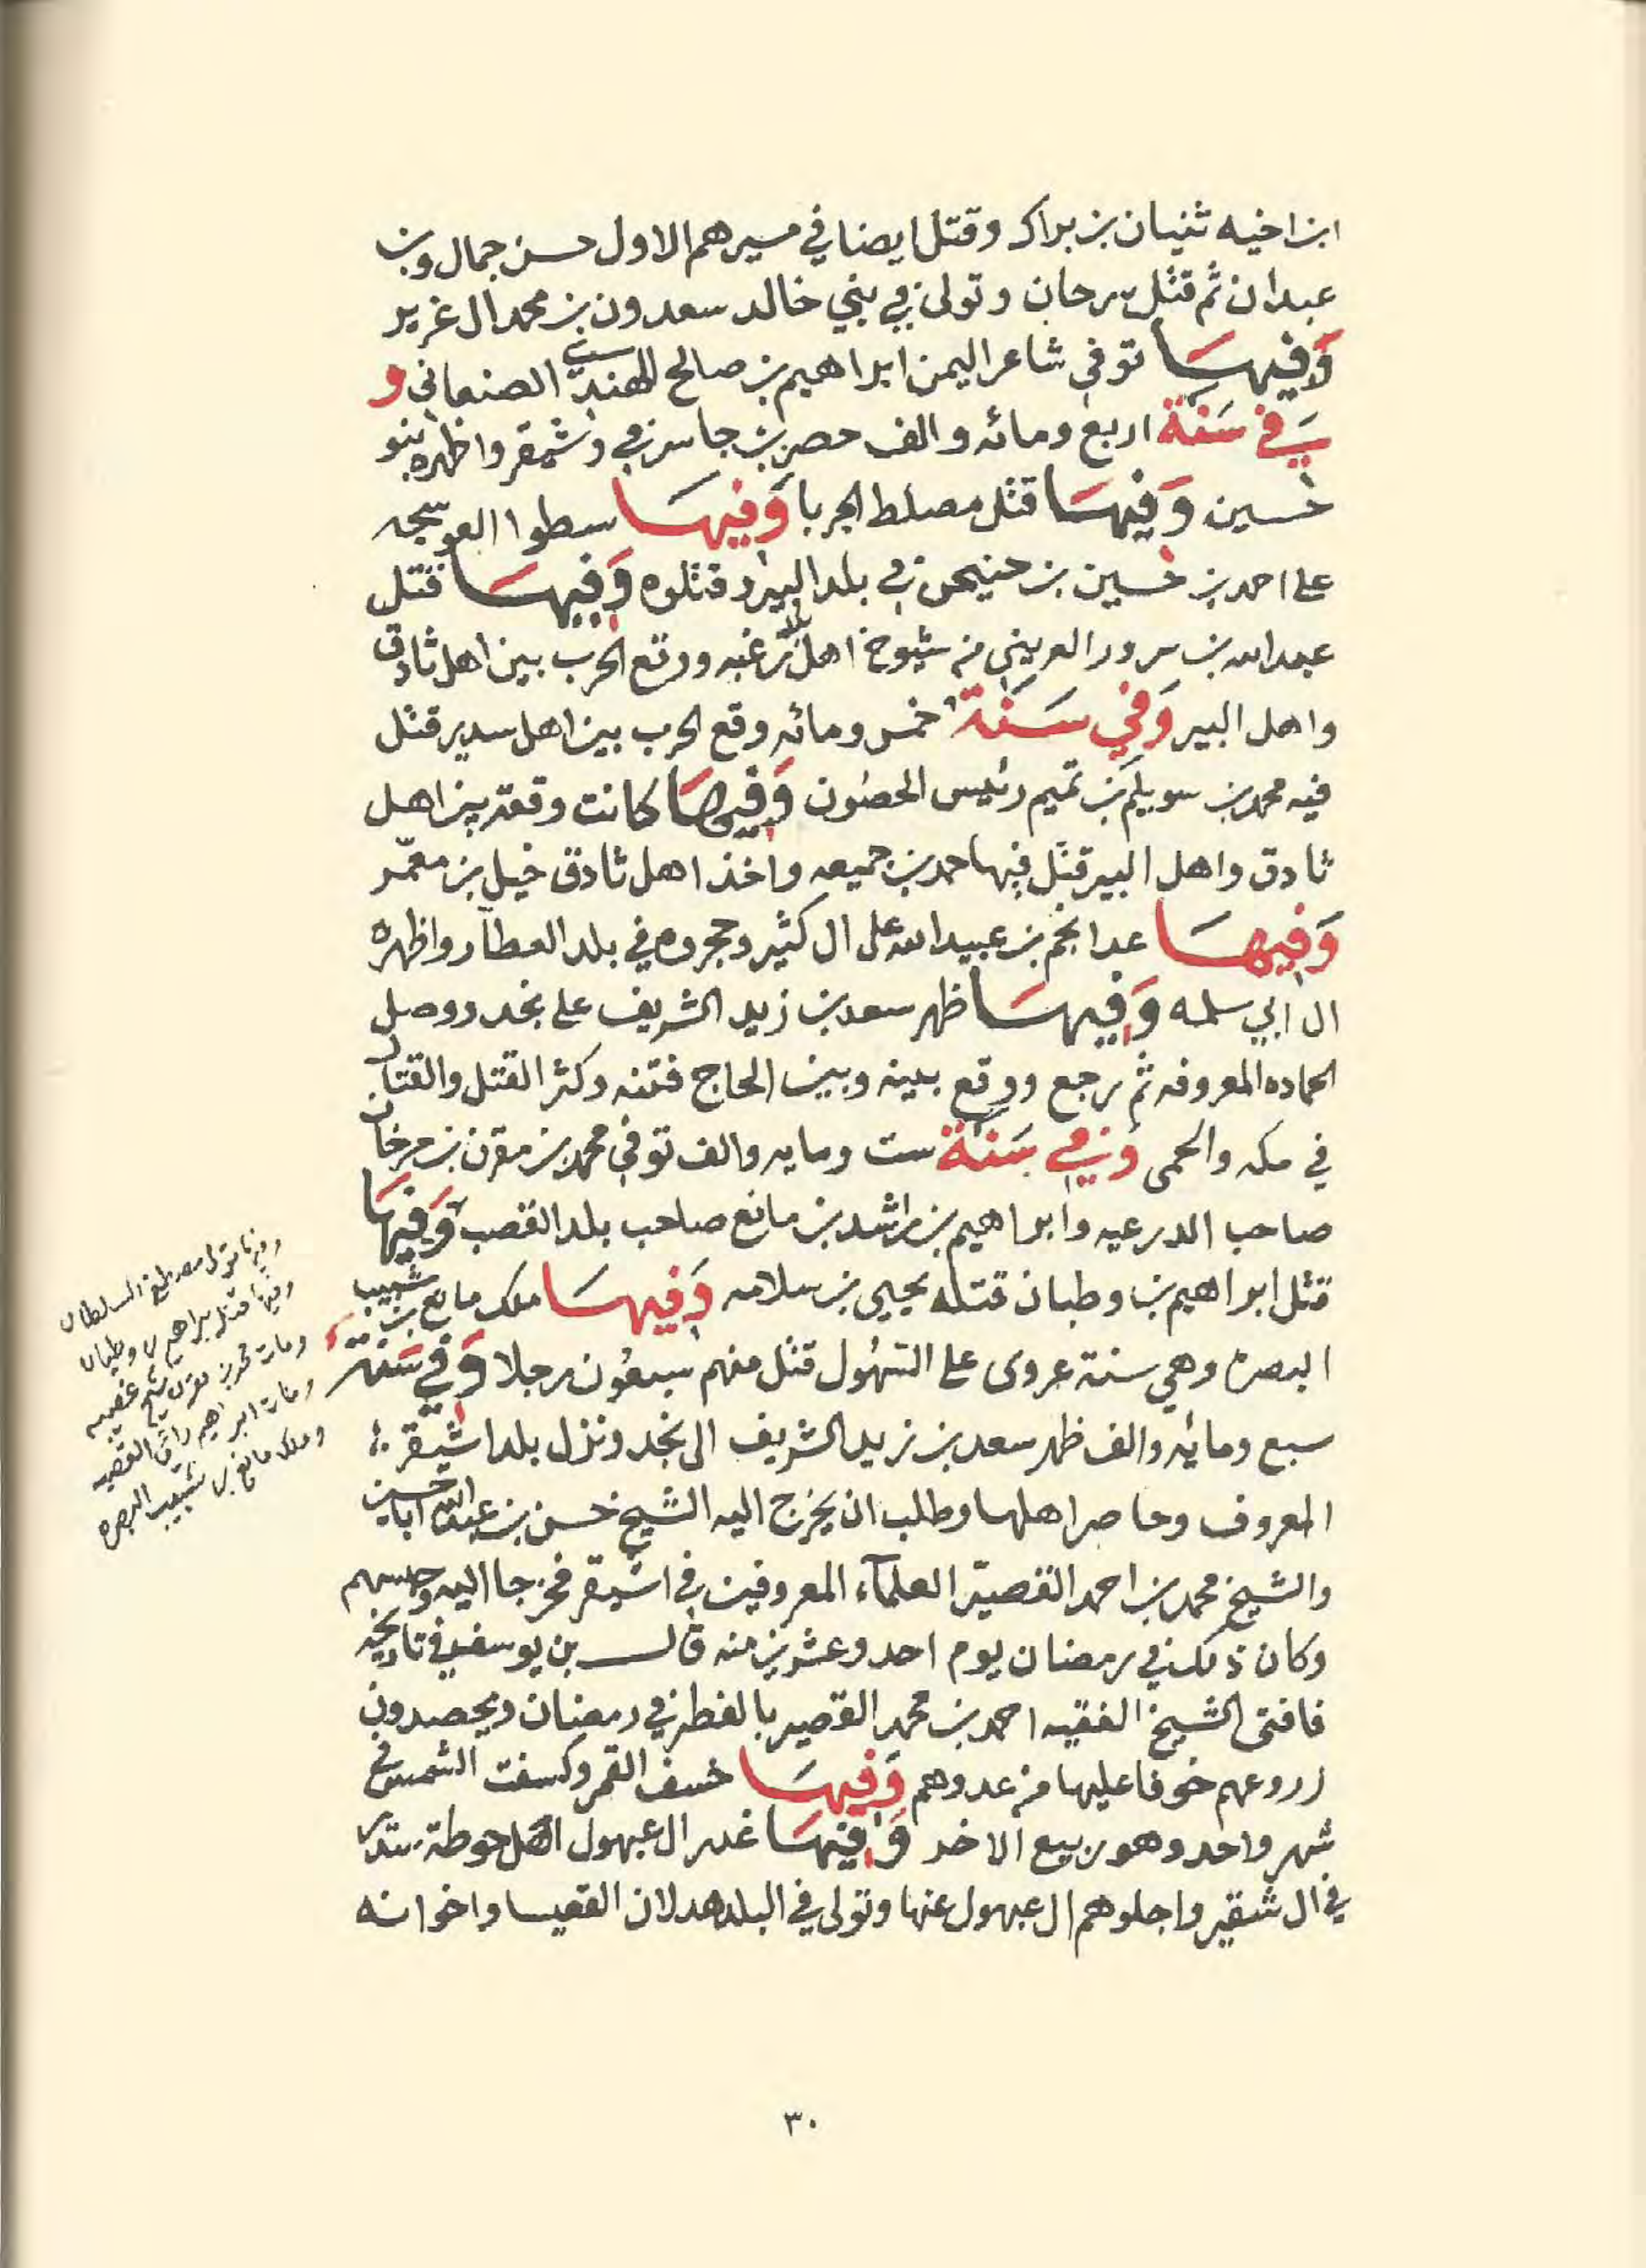 ابن اخيه ثنيان بن براك وقتل ايضا في مسيرهم الاول حسن جمال وبن
عبدان ثم قتل سرحان وتولى في بني خالد سعدون بن محمد ال غرير
وفيها توفي شاعر اليمن ابراهيم بن صالح الهندي الصنعاني و
في سنة اربع ومائه والف حصر بن جاسر في وشيقر واظهره بنو
حسين وفيها قتل مصلط الجربا وفيها سطوا العوسجه
على احمد بن حسين بن حنيحن في بلد البير وقتلوه وفيها قتل
عبدالله بن سرور العريني من شيوخ اهل رغبه ووقع الحرب بين اهل ثادق
واهل البير وفي سنة خمس ومائه وقع الحرب بين اهل سدير قتل
فيه محمد بن سويلم بن تميم رئيس الحصون وفيها كانت وقعة بين اهل
ثادق واهل البير قتل فيها حمد بن جميعه واخذ اهل ثادق خيل بن معمر
وفيها عدا نجم بن عبيدالله على ال كثير وحجروه في بلد العطار واظهره
ال ابي سلمه وفيها ظهر سعد بن زيد الشريف على نجد ووصل
الحماده المعروفه ثم رجع ووقع بينه وبين الحاج فتنه وكثر القتل والقتال
في مكه والحمى وفي سنة ست ومايه والف توفي محمد بن مقرن بن مرخان
صاحب الدرعيه وابراهيم بن راشد بن مانع صاحب بلد القصب وفيها
قتل ابراهيم بن وطبان قتله يحيى بن سلامه وفيها ملك مانع بن شبيب
البصره وهي سنة عروى على السهول قتل منهم سبعون رجلا وفي سنة
سبع ومائه والف ظهر سعد بن زيد الشريف الى نجد ونزل بلد اشيقر
المعروف وحاصر اهلها وطلب ان يخرج اليه الشيخ حسن بن عبدالله اباحسين
والشيخ محمد بن احمد القصير العلماء المعروفين في اشيقر فخرجا اليه وحبسهم
وكان ذلك في رمضان يوم احد وعشرين منه قال بن يوسف في تاريخه
فافتى الشيخ الفقيه احمد بن محمد القصير بالفطر في رمضان ويحصدون
زروعهم خوفا عليها من عدوهم وفيها خسف القمر وكسفت الشمس في
شهر واحد وهو ربيع الاخر وفيها غدر ال عبهول اهل حوطة
في ال شقير واجلوهم ال عبهول عنها وتولى في البلد هدلان القعيسا واخوانه
وفيها تولى مصطفى السلطان
وفيها قتل ابراهيم بن وطبان
ومات محمد بن مقرن
ومات ابراهيم راعي القصب
وملك مانع بن شبيب البصره
٣٠